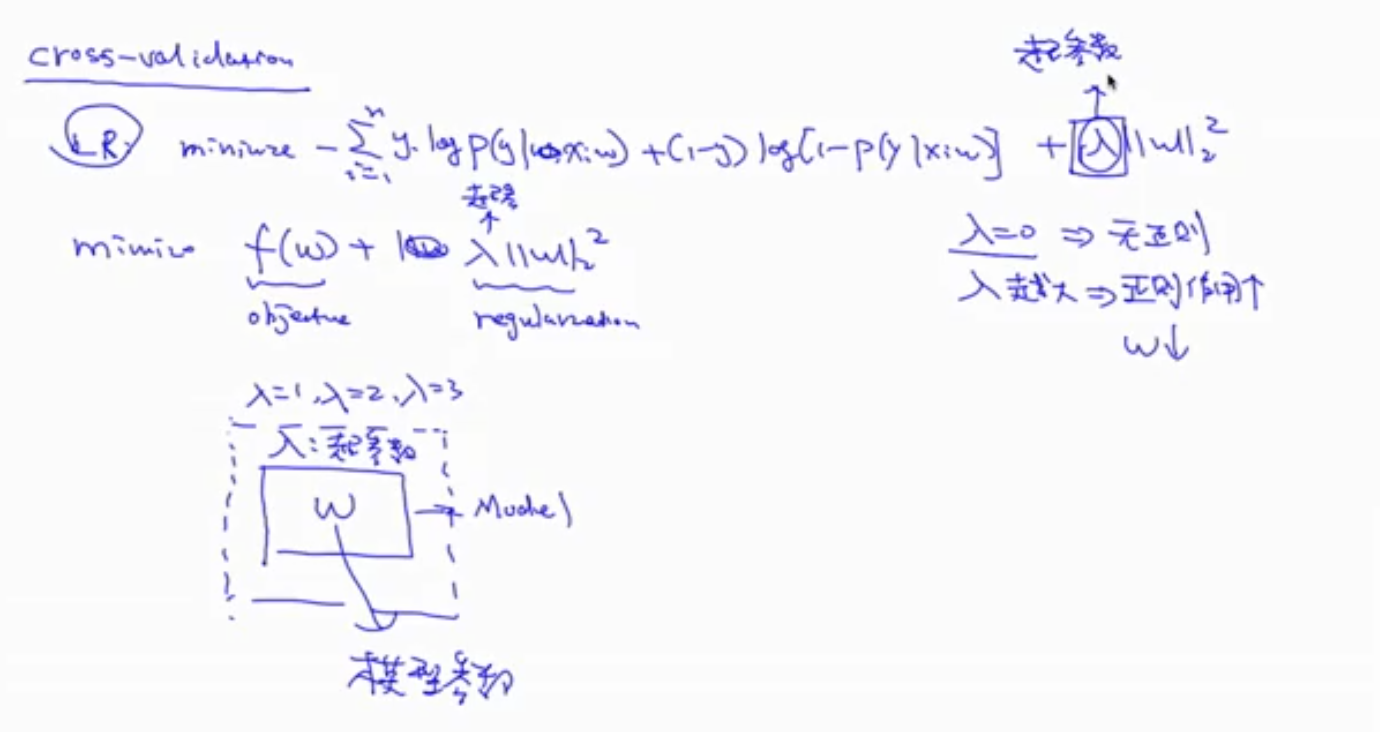 cross-validation
超参数
LR. minimize - ∑_{i=1}^{n} y. log p(y|x;w) + (1-y) log[1-p(y|x;w)] + λ||w||_2^2
超参
minimize f(w) + λ||w||_2^2
objective regularization
λ=0 ⇒ 无正则
λ越大 ⇒ 正则作用↑
w↓
λ=1, λ=2, λ=3
λ:超参数
w → Model
模型参数